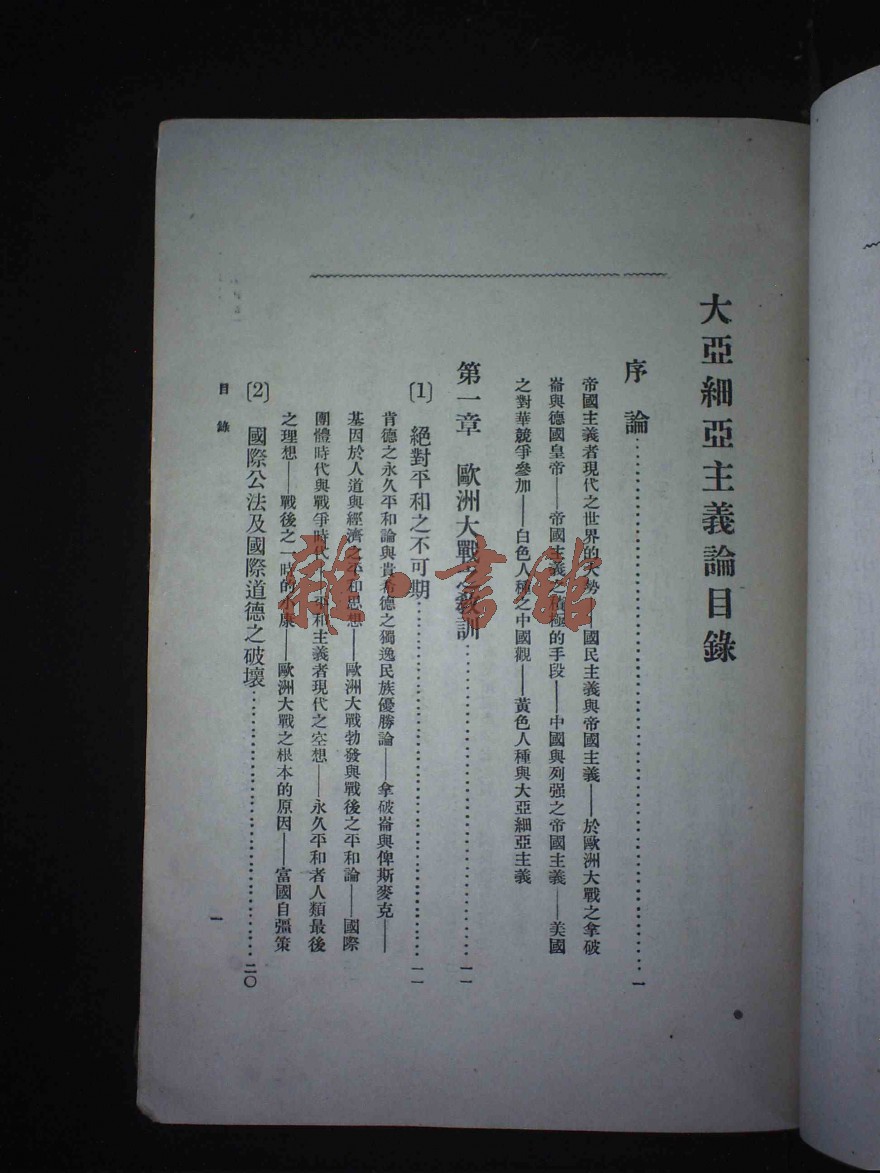 大亞細亞主義論目錄
序論……………………一
帝國主義者現代之世界的大勢——國民主義與帝國主義——於歐洲大戰之拿破
崙與德國皇帝——帝國主義之積極的手段——中國與列强之帝國主義——美國
之對華競爭參加——白色人種之中國觀——黃色人種與大亞細亞主義
第一章 歐洲大戰之教訓……………………一一
〔1〕 絕對平和之不可期……………………一一
肯德之永久平和論與貴希德之獨逸民族優勝論——拿破崙與俾斯麥克——
基因於人道與經濟之平和思想——歐洲大戰勃發與戰後之平和論——國際
團體時代與戰爭時代——平和主義者現代之空想——永久平和者人類最後
之理想——戰後之一時的小康——歐洲大戰之根本的原因——富國自彊策
〔2〕 國際公法及國際道德之破壞……………………二〇
目錄
一
雜·書館